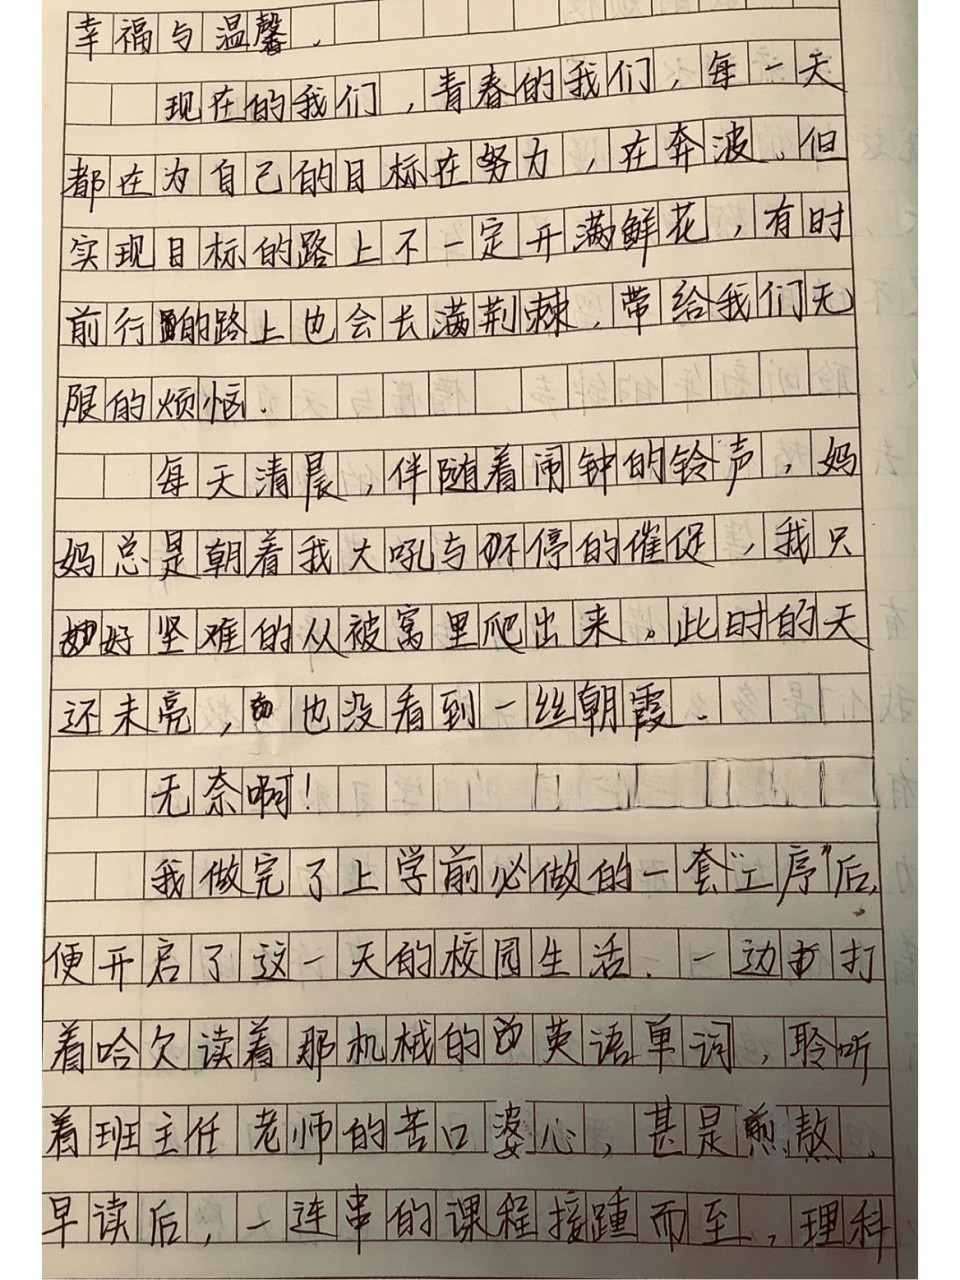 幸福与温馨.
现在的我们,青春的我们,每一天
都在为自己的目标在努力,在奔波。但
实现目标的路上不一定开满鲜花,有时
前行的路上也会长满荆棘.带给我们无
限的烦恼.
每天清晨,伴随着闹钟的铃声,妈
妈总是朝着我大吼与不停的催促,我只
好坚难的从被窝里爬出来。此时的天
还未亮,也没看到一丝朝霞.
无奈啊!
我做完了上学前必做的一套“工序”后,
便开启了这一天的校园生活.一边打
着哈欠读着那机械的英语单词,聆听
着班主任老师的苦口婆心,甚是煎熬.
早读后,一连串的课程接踵而至,理科